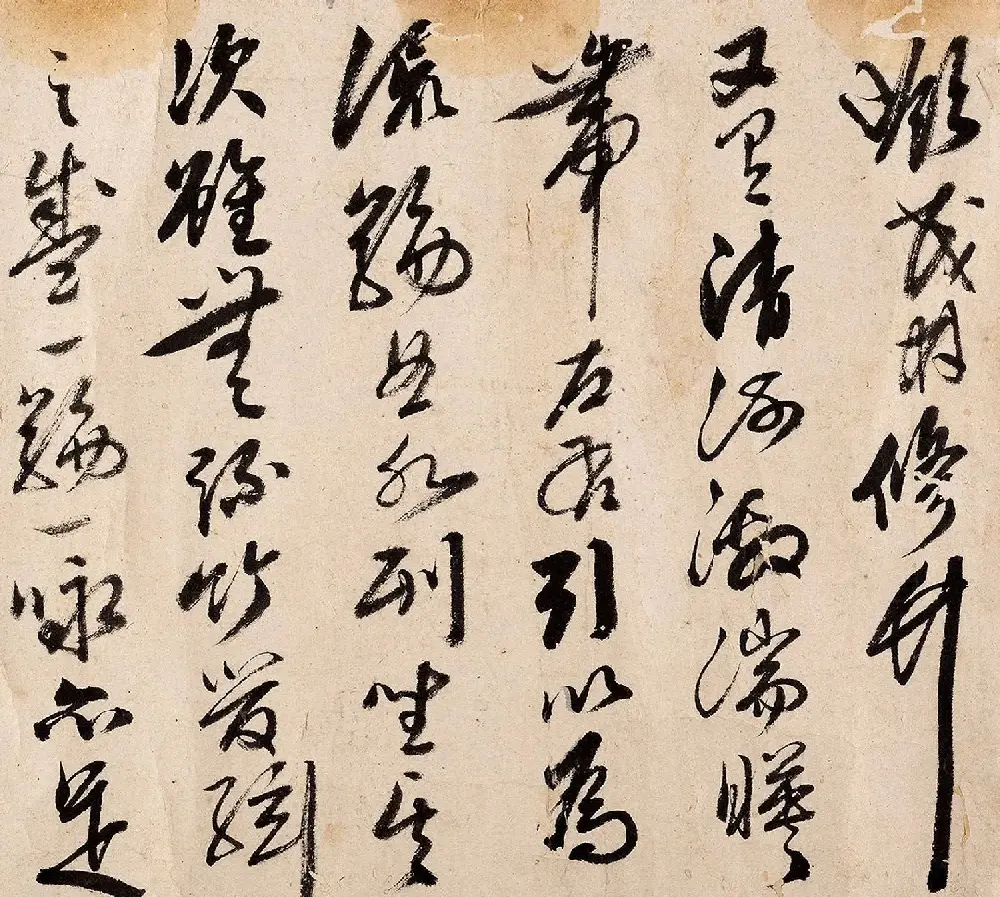 領茂林修竹
又有清流激湍暎
帶左右引以為
流觴曲水列坐其
次雖無絲竹管絃
之盛一觴一詠亦足